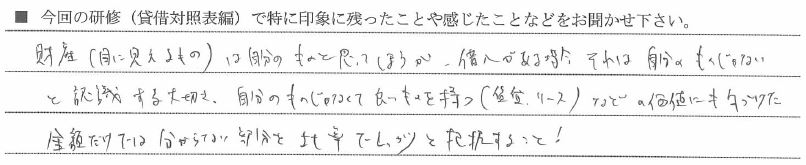 ■ 今回の研修（貸借対照表編）で特に印象に残ったことや感じたことなどをお聞かせ下さい。
財産（目に見えるもの）は自分のものと思ってしまうが、借入がある場合それは自分のものじゃない
と認識する大切さ、自分のものじゃなくて良いものを持つ（賃貸、リース）などの価値にも気づけた
金額だけでは分からない部分を比率でしっかりと把握すること！